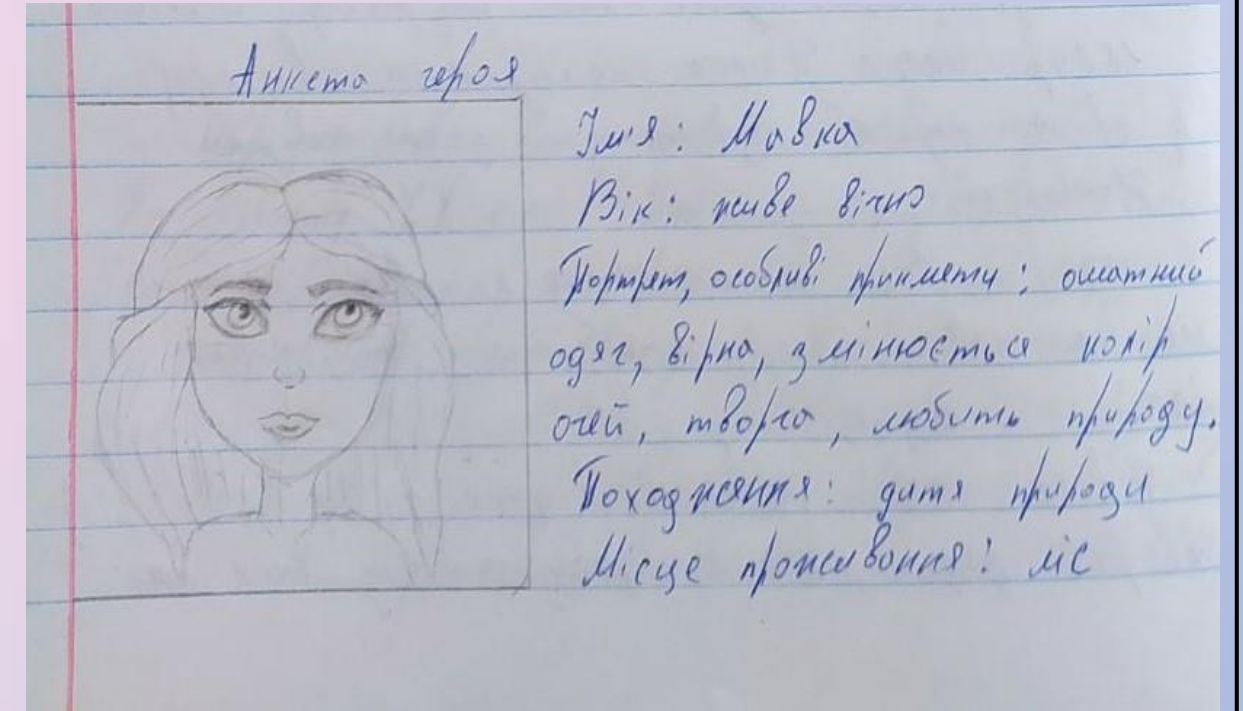 Анкета героя
Ім'я: Мавка
Вік: живе вічно
Портрет, особливі прикмети: ошатний
одяг, вірна, змінюється колір
очей, творча, любить природу.
Походження: дитя природи
Місце проживання: ліс